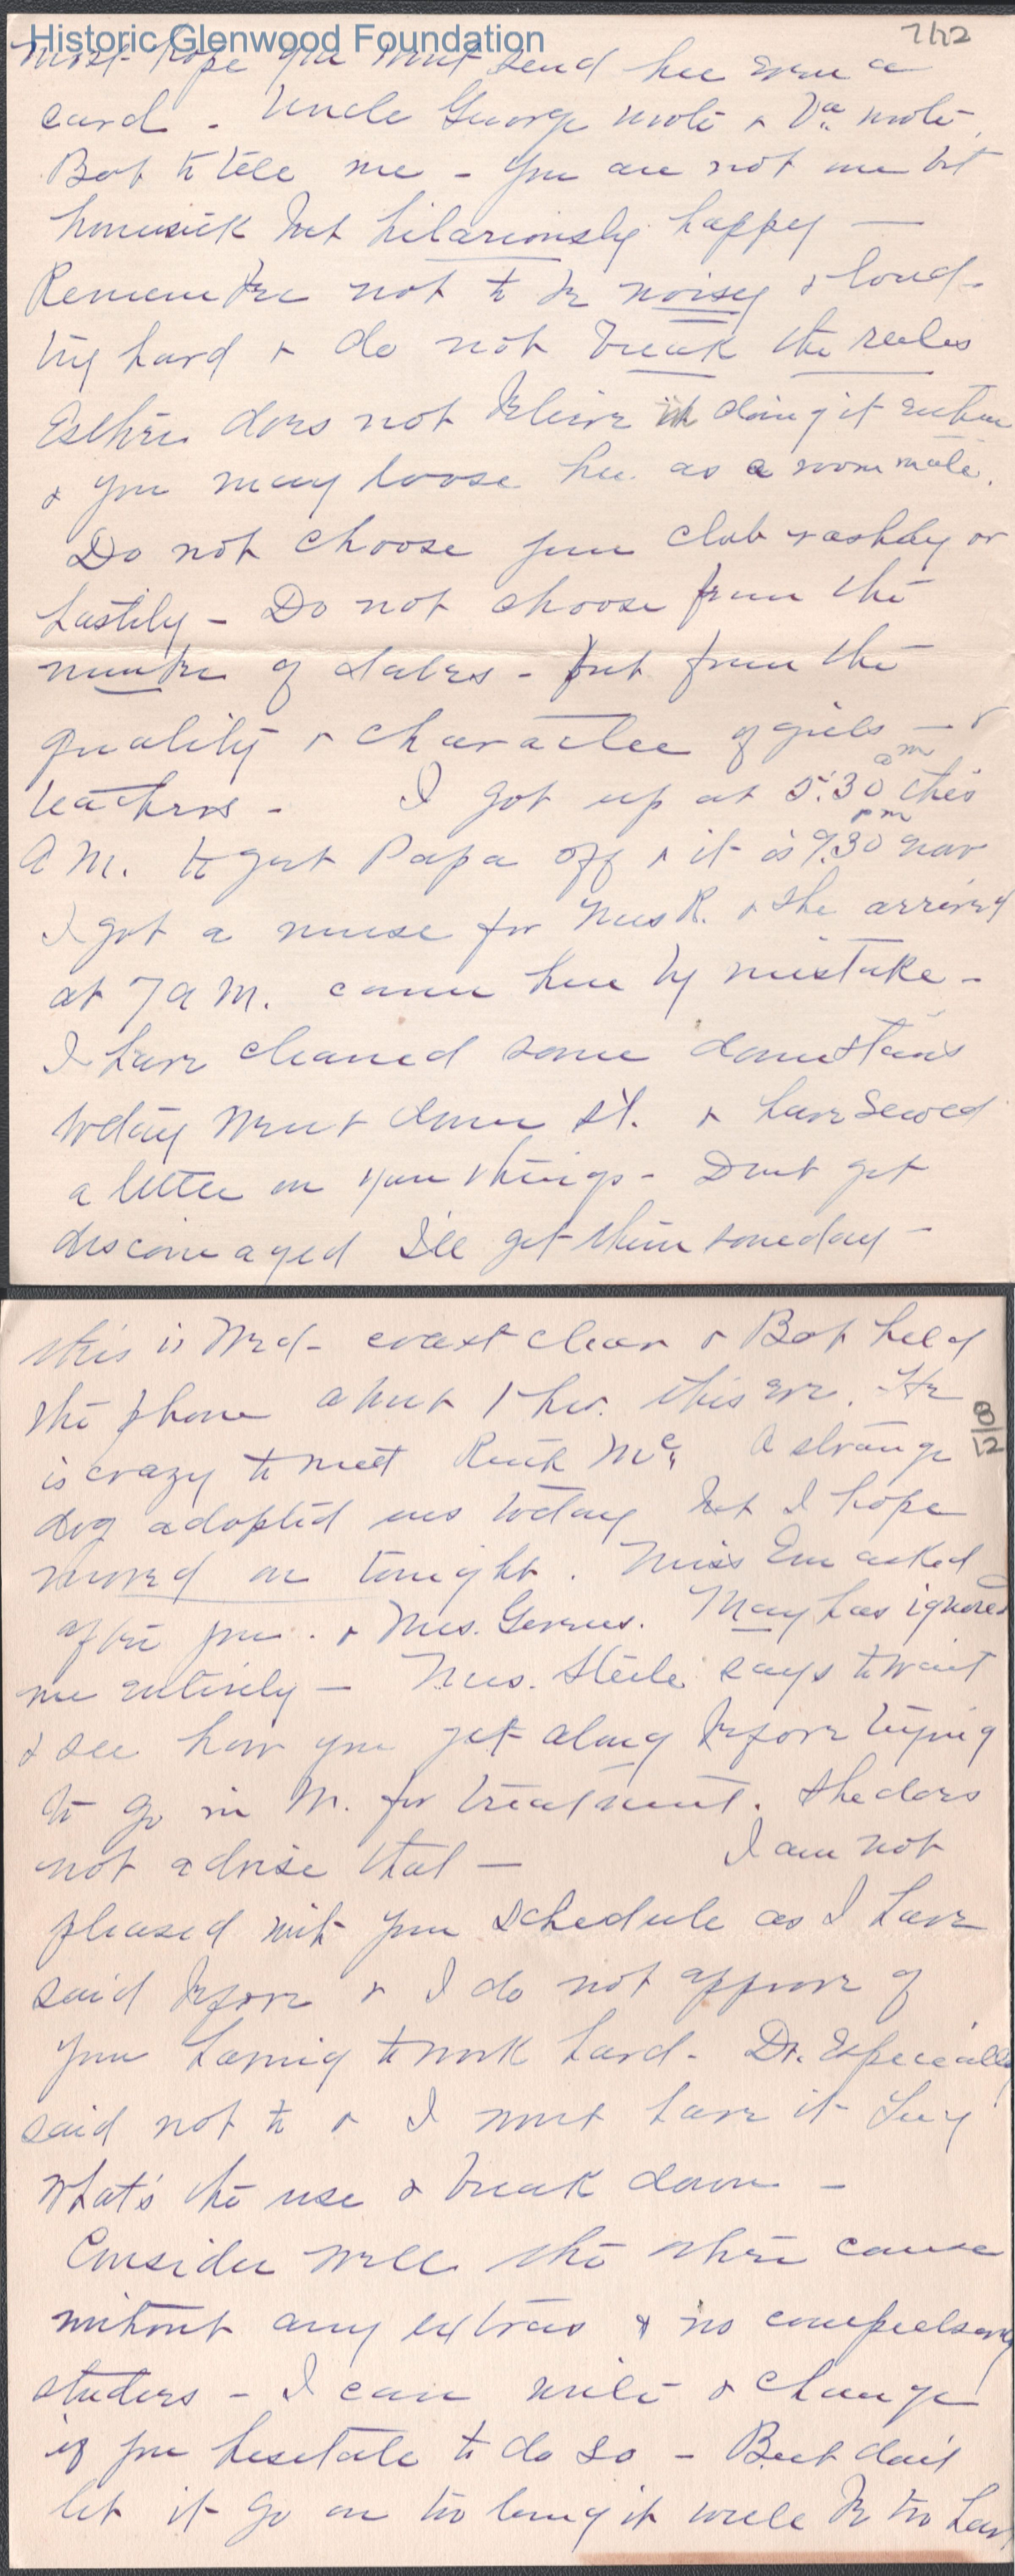 Historic Glenwood Foundation
7/12
most hope you wont send her even a
card - Uncle George wrote & Va. wrote
Bob to tell me - you are not one bit
homesick but hilariously happy —
Remember not to be noisy & loud -
try hard & do not break the rules
Esther does not believe in doing it either
& you may loose her as a room mate.
Do not choose your club rashly or
hastily - Do not choose from the
number of dates - but from the
quality & character of girls — &
teachers - I got up at 5:30 am this
A M. to get Papa off & it is 9:30 pm now
I got a nurse for Mrs R. & she arrived
at 7 A M. came here by mistake -
I have cleaned some downstairs
today went down st. & have sewed
a little on your things - Dont get
discouraged I'll get them someday -
this is Wed - coast clear & Bob held
the phone about 1 hr. this eve. He
8/12
is crazy to meet Ruth Mc. A strange
dog adopted us today but I hope
moved on tonight. Miss Em asked
after you. & Mrs. May has ignored
me entirely — Mrs. Steele says to wait
& see how you get along before trying
to go in M. for treatment. She does
not advise that — I am not
pleased with your schedule as I have
said before & I do not approve of
your having to work hard - Dr. Especially
said not to & I must have it
What's the use & break down -
Consider well the other course
without any extras & no compulsory
studies - I can write & change
if you hesitate to do so - But don't
let it go on too long it will be too late